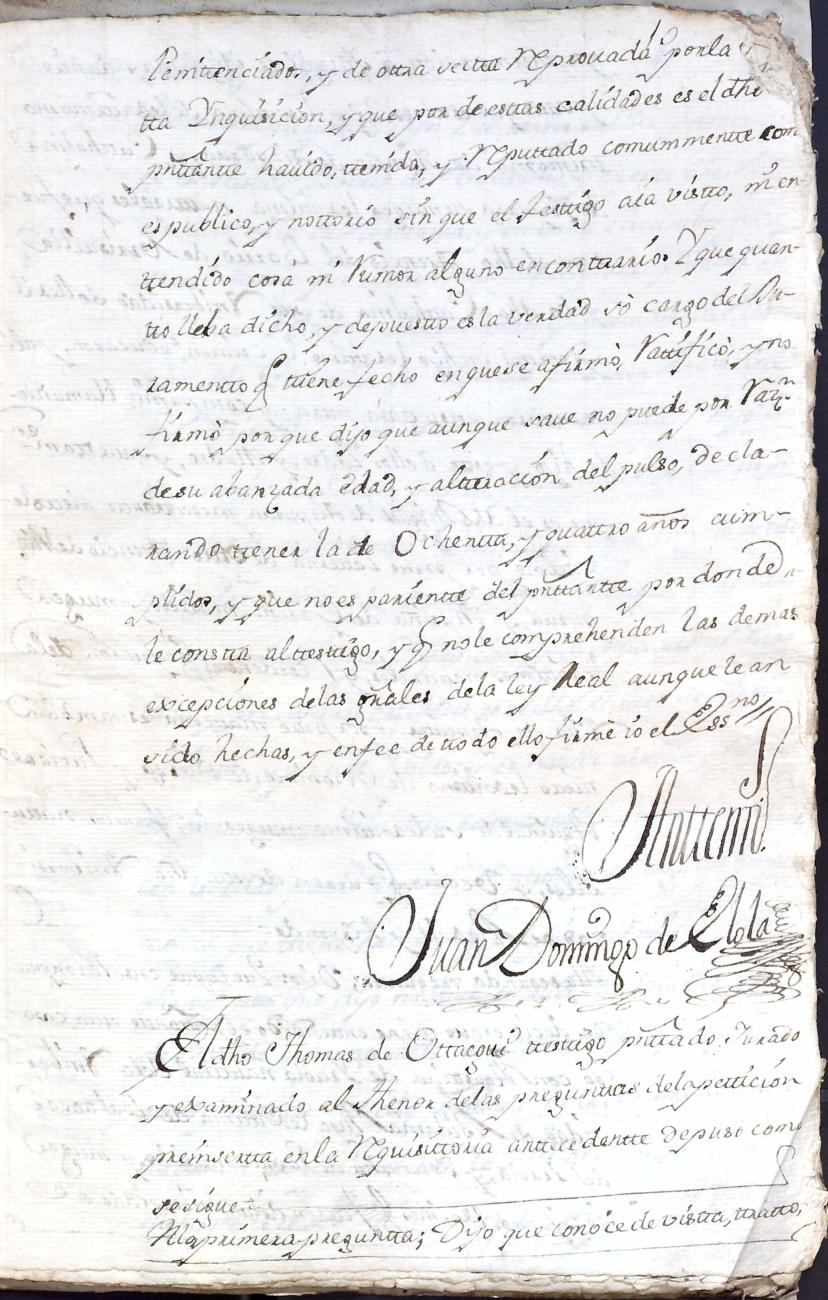 Penitenciados, y de ottra sectta Reprouada porla
tta Ynquisicion, y que por de esttas calidades es el dho
pnttantte hauido, ttenido, y Reputtado comunmentte com
es publico, y nottorio sin que el testtigo aia vistto, ni en-
ttendido cosa ni rumor alguno encontrario. Y que quan-
tto lleba dicho, y depuestto es la verdad so cargo del Ju-
ramentto q ttiene fecho enquese afirmò, rattificò, y no
firmò porque dijo que aunque save no puede por Razn
desu abanzada edad, y altteracción del pulso, decla-
rando ttener la de Ochentta, y quattro años cum-
plidos, y que no es parientte del pnttantte por donde
le constta al testtigo, y q nole comprehenden las demas
excepciones delas gnrales dela ley Real aunque le an
sido hechas, y enfee de ttodo ello firmè io el Essno
Anttemi
Juan Domingo de Elola
El dho Thomas de Ottaegui testtigo pnttado, Jurado
y examinado al thenor delas preguntas dela petticion
preinsertta en la Requisittoria anttecedentte depuso como
sesigue
Ala primera preguntta; Dijo que conoce de vistta, ttratto,